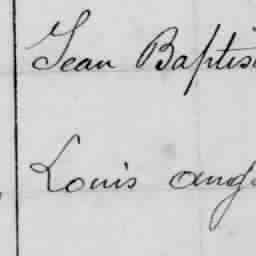 Jean Baptis
Louis ang